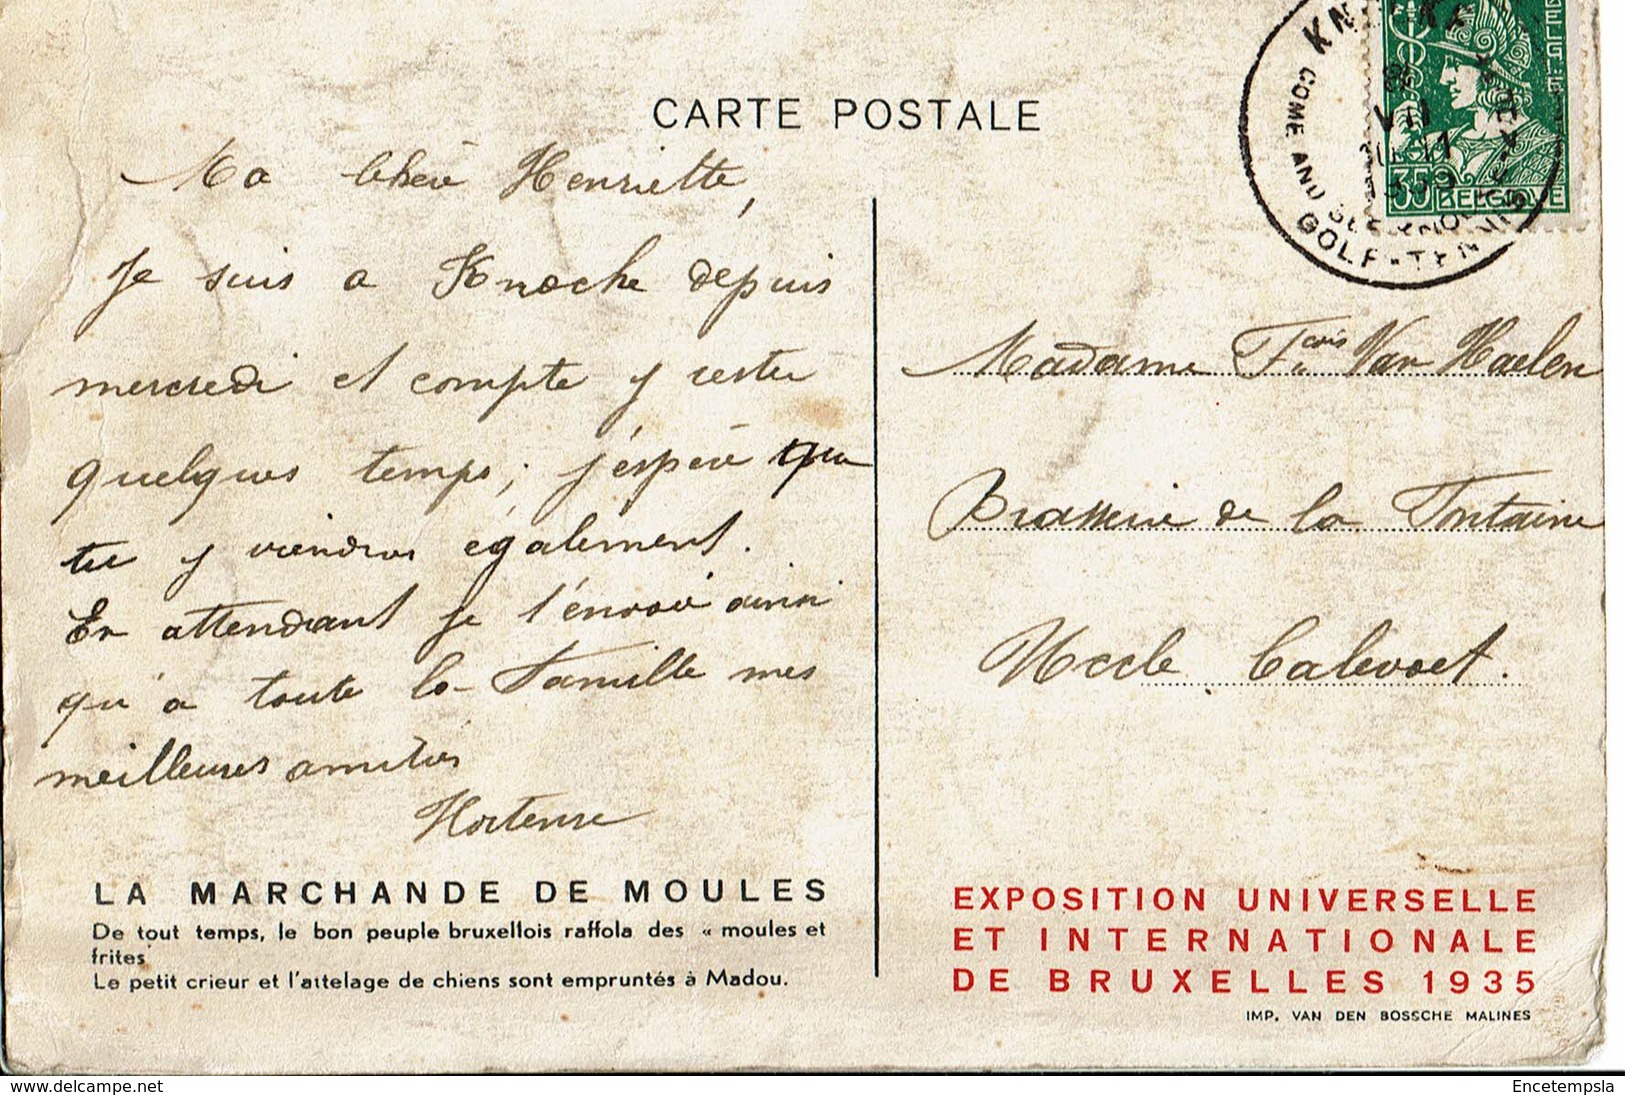 CARTE POSTALE
Ma chère Henriette,
Je suis a Knocke depuis
mercredi et compte y rester
quelques temps, j'espère que
tu y viendras également.
En attendant je t'envoie ainsi
qu'a toute la famille mes
meilleures amitiés
Hortense
LA MARCHANDE DE MOULES
De tout temps, le bon peuple bruxellois raffola des « moules et
frites
Le petit crieur et l'attelage de chiens sont empruntés à Madou.
COME AND SEE
GOLF - TENNIS
VII
1935
35c BELGIQUE
Madame Fcois Van Haelen
Brasserie de la Fontaine
Uccle Calevoet.
EXPOSITION UNIVERSELLE
ET INTERNATIONALE
DE BRUXELLES 1935
IMP. VAN DEN BOSSCHE MALINES
www.delcampe.net
Encetempsla